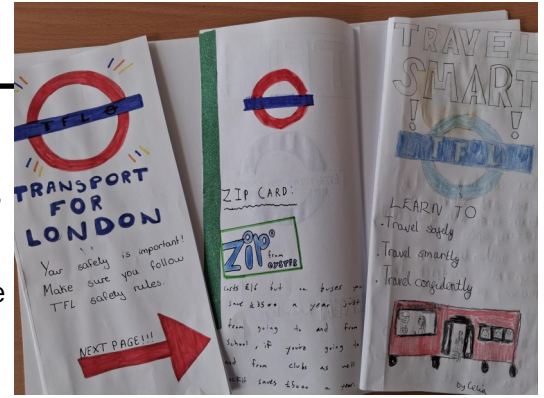 TRANSPORT
FOR
LONDON
Your safety is important!
Make sure you follow
TFL safety rules.
NEXT PAGE!!!
ZIP CARD:
Zip
from
costs £16 but on buses you
save a year just
from going to and from
school, if you're going to
and from clubs as well
saves a year
TRAVEL
SMART
! !
LEARN TO
. Travel safely
. Travel smartly
. Travel confidently
by Celia